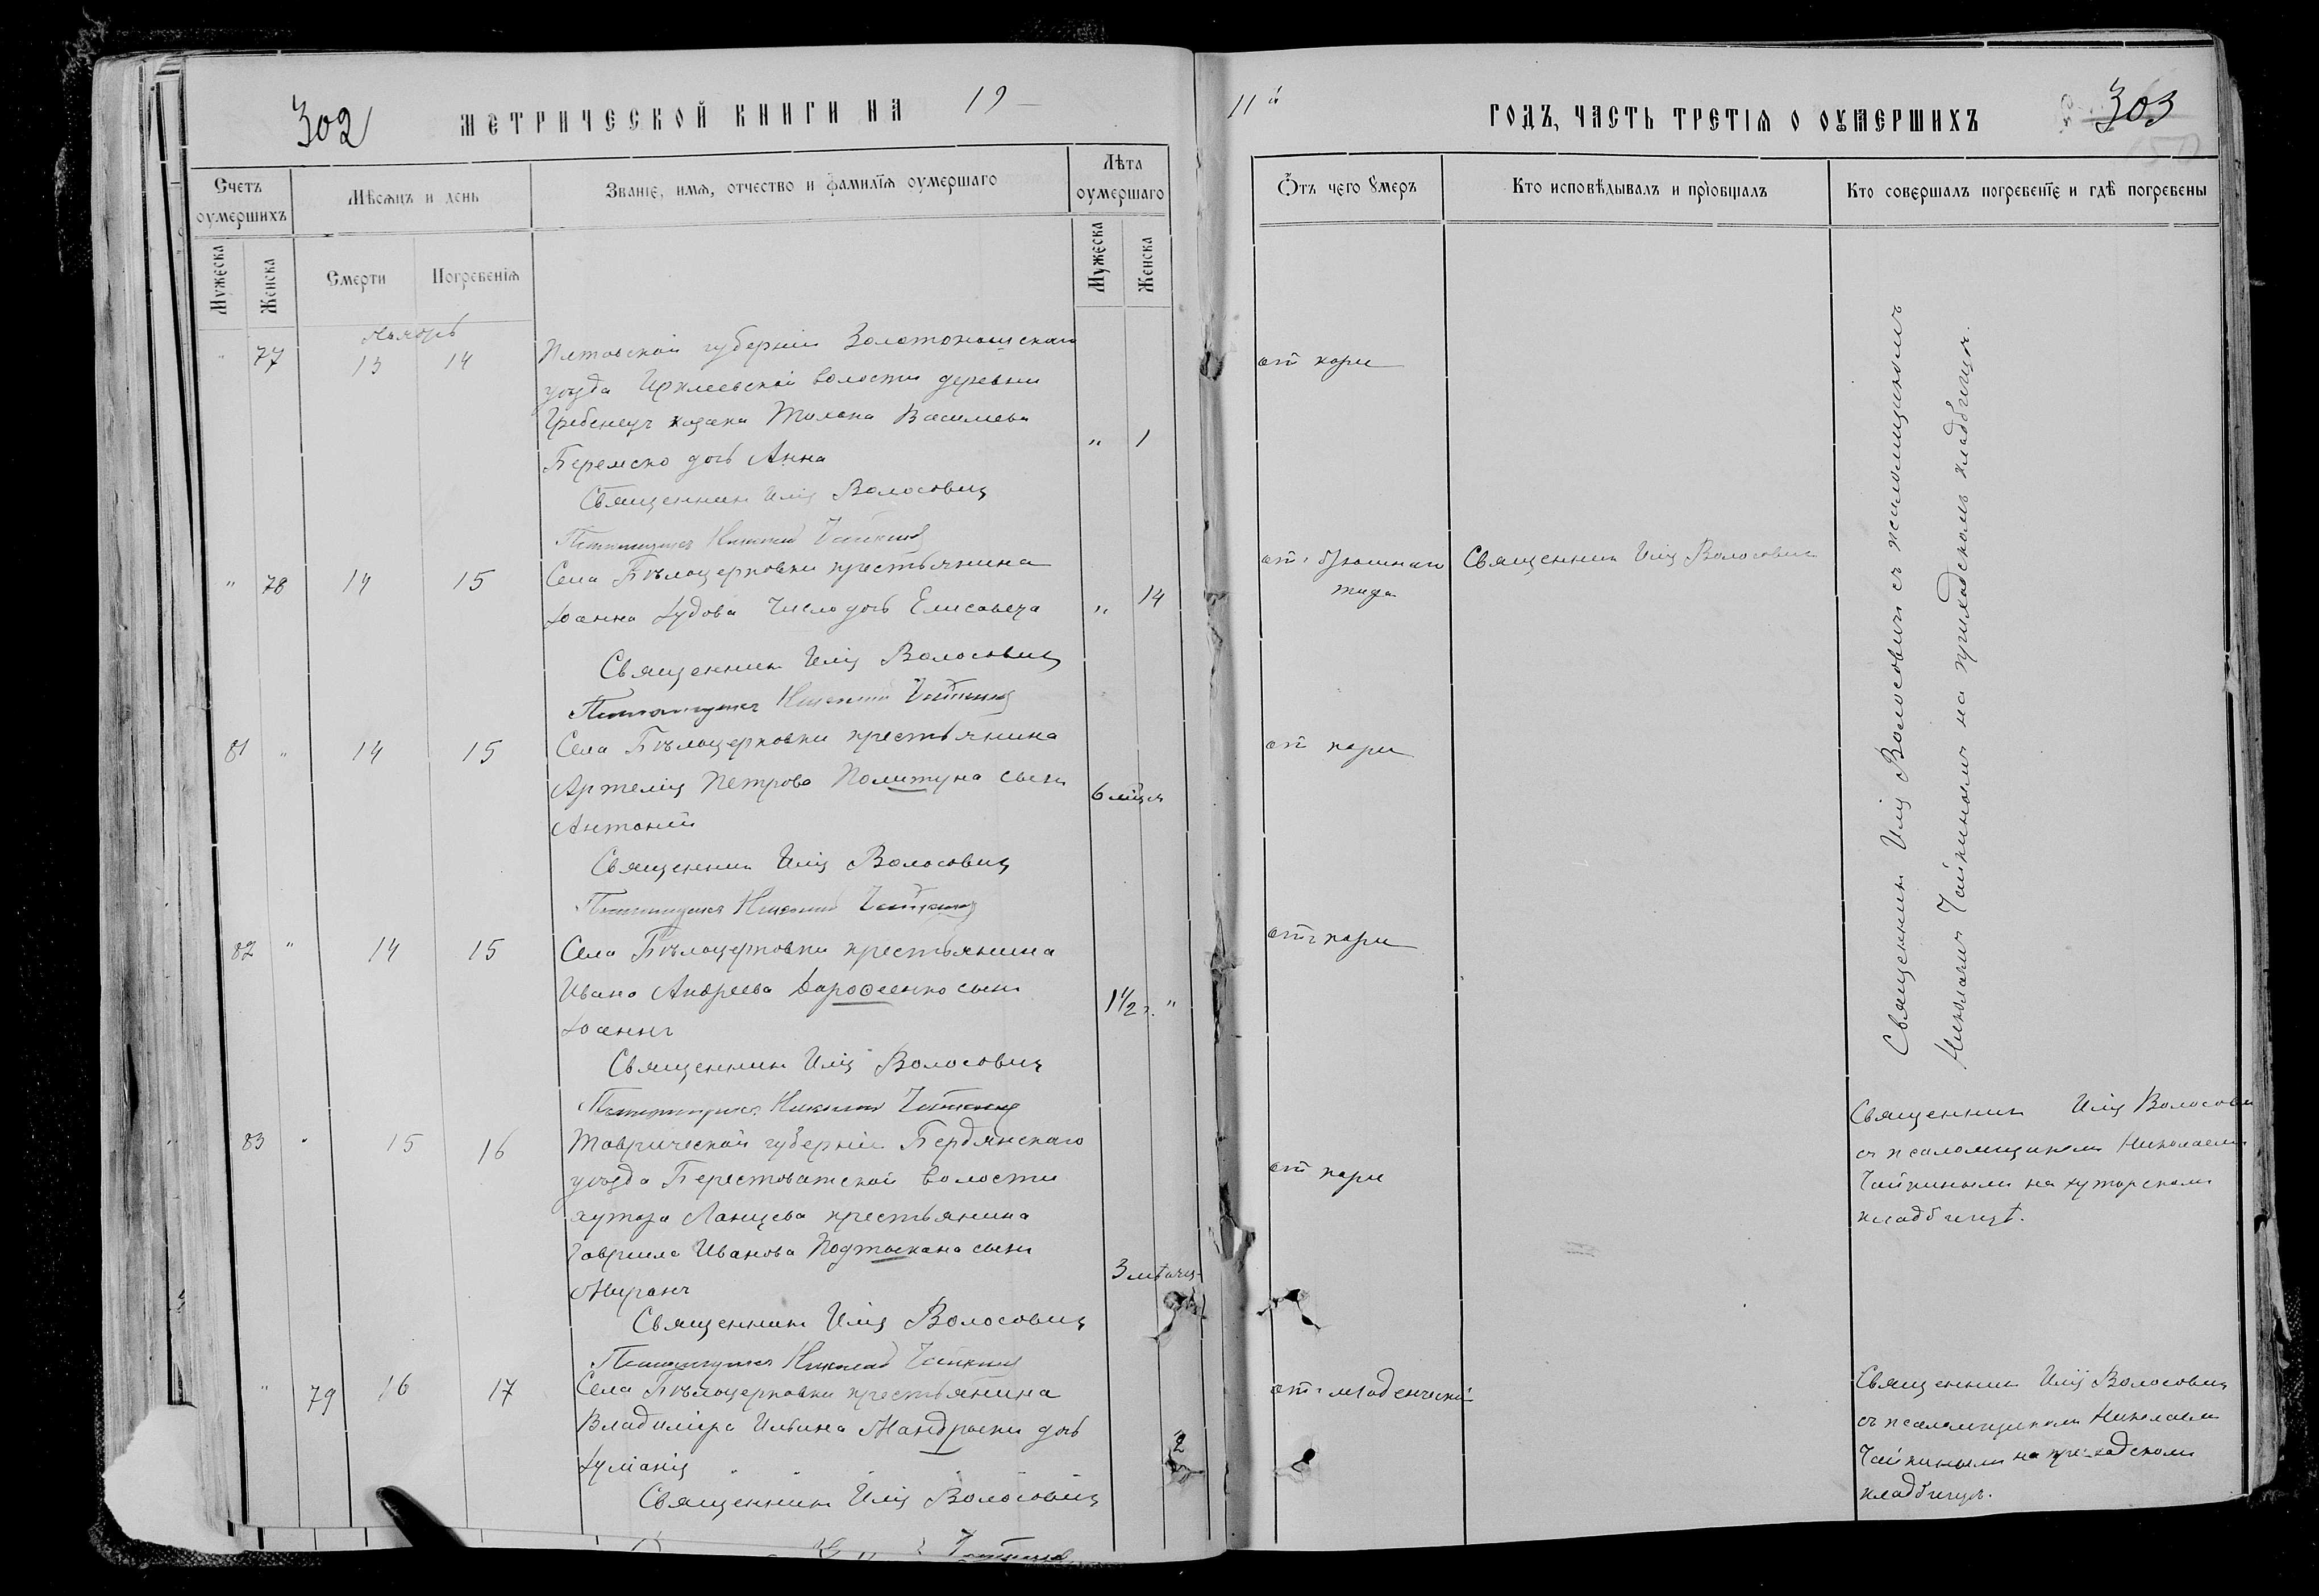 302
МЕТРИЧЕСКОЙ КНИГИ НА 19
Счетъ оумершихъ
Мѣсяцъ и день
Званіе, имя, отчество и фамилія оумершаго
Лѣта оумершаго
Мужеска
Женска
Смерти
Погребенія
Мужеска
Женска
Ноябрь
" 77 13 14
губерніи Золотоношскаго
уѣзда Ирклеевской волости деревни
козака Василіева
дочь Анна
" 1
Священникъ Илія Волосовичъ
Псаломщикъ Николай Чайкинъ
" 78 14 15
Села Бѣлоцерковки крестьянина
Іоанна дочь Елисавета
" 14
Священникъ Илія Волосовичъ
Псаломщикъ Николай Чайкинъ
81 " 14 15
Села Бѣлоцерковки крестьянина
Артемія Петрова Политуна сынъ
Антоній
6 мѣся
Священникъ Илія Волосовичъ
Псаломщикъ Николай Чайкинъ
82 " 14 15
Села Бѣлоцерковки крестьянина
Ивана Андреева Дароѳеенко сынъ
Іоаннъ
1 1/2 г. "
Священникъ Илія Волосовичъ
Псаломщикъ Николай Чайкинъ
83 " 15 16
Таврической губерніи Бердянскаго
уѣзда Берестоватской волости
хутора Ланцева крестьянина
Гавріила Иванова сынъ
Миронъ
3 мѣсяц
Священникъ Илія Волосовичъ
Псаломщикъ Николай Чайкинъ
" 79 16 17
Села Бѣлоцерковки крестьянина
Владиміра Ильина Мандрыки дочь
Іуліанія
2
Священникъ Илія Волосовичъ
11й
ГОДЪ, ЧАСТЬ ТРЕТІЯ О ОУМЕРШИХЪ
303
Ѿтъ чего ѹмеръ
Кто исповѣдывалъ и пріобщалъ
Кто совершалъ погребеніе и гдѣ погребены
отъ кори
отъ брюшнаго
тифа
Священникъ Илія Волосовичъ
отъ кори
отъ кори
отъ кори
отъ младенческой
Священникъ Илія Волосовичъ съ псаломщикомъ
Николаемъ Чайкинымъ на приходскомъ кладбищѣ.
Священникъ Илія Волосови
съ псаломщикомъ Николаемъ
Чайкинымъ на хуторскомъ
кладбищѣ.
Священникъ Илія Волосовичъ
съ псаломщикомъ Николаемъ
Чайкинымъ на приходскомъ
кладбищѣ.